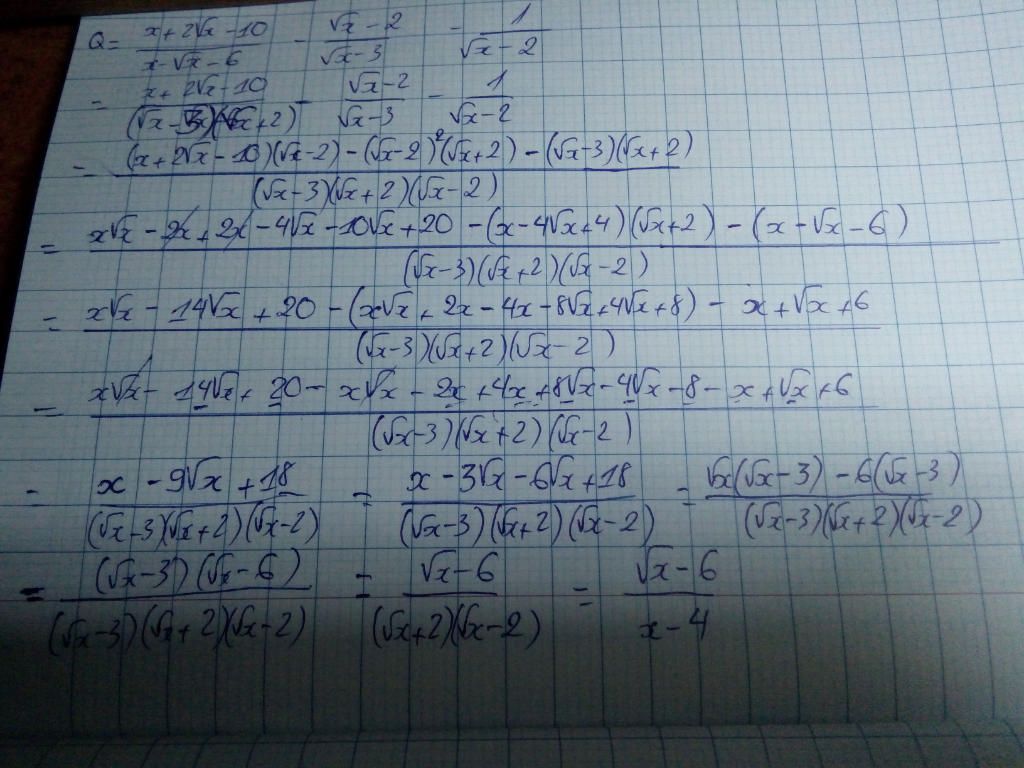 Q = (x+2√x-10)/(x-√x-6) - (√x-2)/(√x-3) - 1/(√x-2)
= (x+2√x-10)/((√x-3)(√x+2)) - (√x-2)/(√x-3) - 1/(√x-2)
= ((x+2√x-10)(√x-2) - (√x-2)²(√x+2) - (√x-3)(√x+2))/((√x-3)(√x+2)(√x-2))
= (x√x - 2x + 2x - 4√x - 10√x + 20 - (x-4√x+4)(√x+2) - (x-√x-6))/((√x-3)(√x+2)(√x-2))
= (x√x - 14√x + 20 - (x√x + 2x - 4x - 8√x + 4√x + 8) - x + √x + 6)/((√x-3)(√x+2)(√x-2))
= (x√x - 14√x + 20 - x√x - 2x + 4x + 8√x - 4√x - 8 - x + √x + 6)/((√x-3)(√x+2)(√x-2))
= (x - 9√x + 18)/((√x-3)(√x+2)(√x-2)) = (x - 3√x - 6√x + 18)/((√x-3)(√x+2)(√x-2)) = (√x(√x-3) - 6(√x-3))/((√x-3)(√x+2)(√x-2))
= ((√x-3)(√x-6))/((√x-3)(√x+2)(√x-2)) = (√x-6)/((√x+2)(√x-2)) = (√x-6)/(x-4)